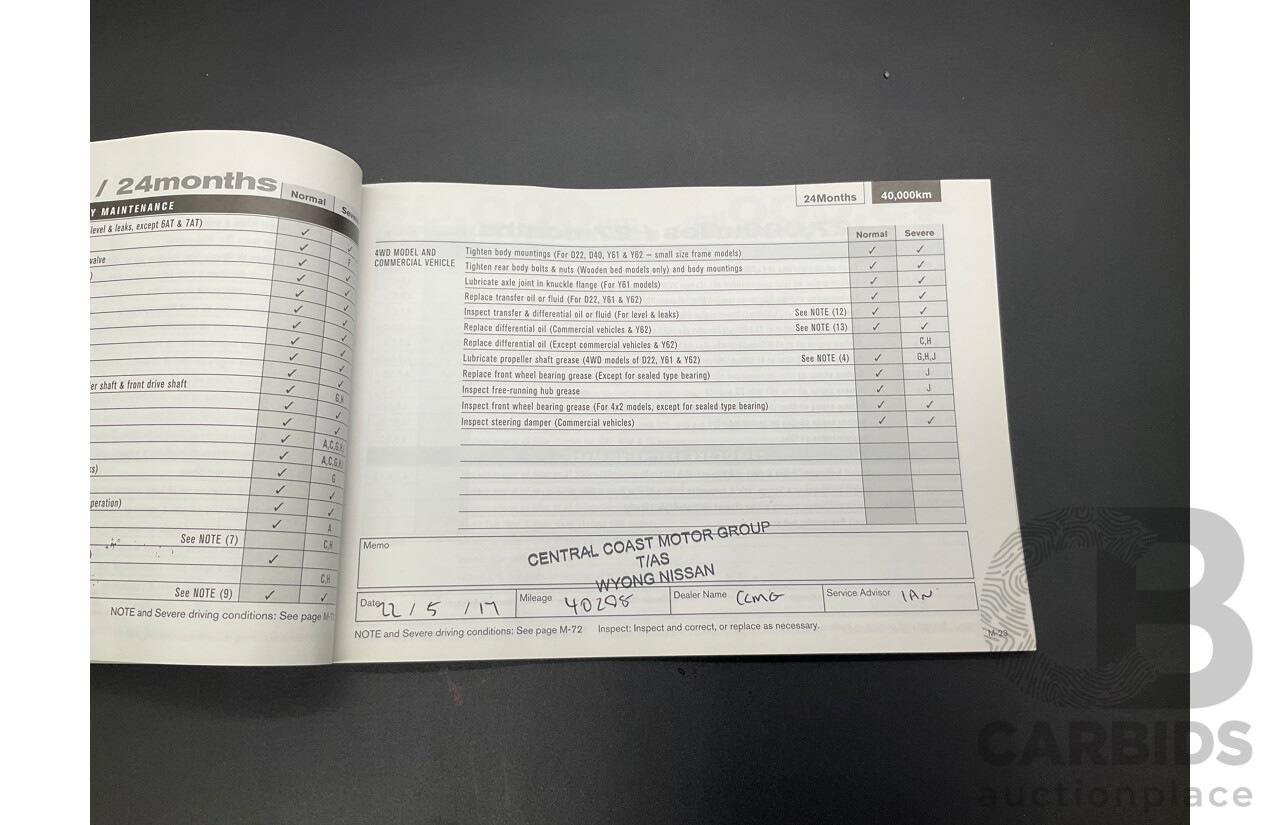 / 24months
Normal
Y MAINTENANCE
level & leaks, except 6AT & 7AT)
valve
er shaft & front drive shaft
G,H
A,C,G,H,
A,C,G,H,
G
peration)
A
See NOTE (7)
C,H
C,H
See NOTE (9)
NOTE and Severe driving conditions: See page M-7
24Months 40,000km
Normal Severe
4WD MODEL AND
COMMERCIAL VEHICLE
Tighten body mountings (For D22, D40, Y61 & Y62 – small size frame models) ✓ ✓
Tighten rear body bolts & nuts (Wooden bed models only) and body mountings ✓ ✓
Lubricate axle joint in knuckle flange (For Y61 models) ✓ ✓
Replace transfer oil or fluid (For D22, Y61 & Y62) ✓ ✓
Inspect transfer & differential oil or fluid (For level & leaks) See NOTE (12) ✓ ✓
Replace differential oil (Commercial vehicles & Y62) See NOTE (13) ✓ ✓
Replace differential oil (Except commercial vehicles & Y62) C,H
Lubricate propeller shaft grease (4WD models of D22, Y61 & Y62) See NOTE (4) ✓ G,H,J
Replace front wheel bearing grease (Except for sealed type bearing) ✓ J
Inspect free-running hub grease ✓ J
Inspect front wheel bearing grease (For 4x2 models, except for sealed type bearing) ✓ ✓
Inspect steering damper (Commercial vehicles) ✓ ✓
Memo
CENTRAL COAST MOTOR GROUP
T/AS
WYONG NISSAN
Date 22 / 5 / 17 Mileage 40298 Dealer Name CCMG Service Advisor IAN
NOTE and Severe driving conditions: See page M-72 Inspect: Inspect and correct, or replace as necessary.
M-23
CB
CARBIDS
auctionplace